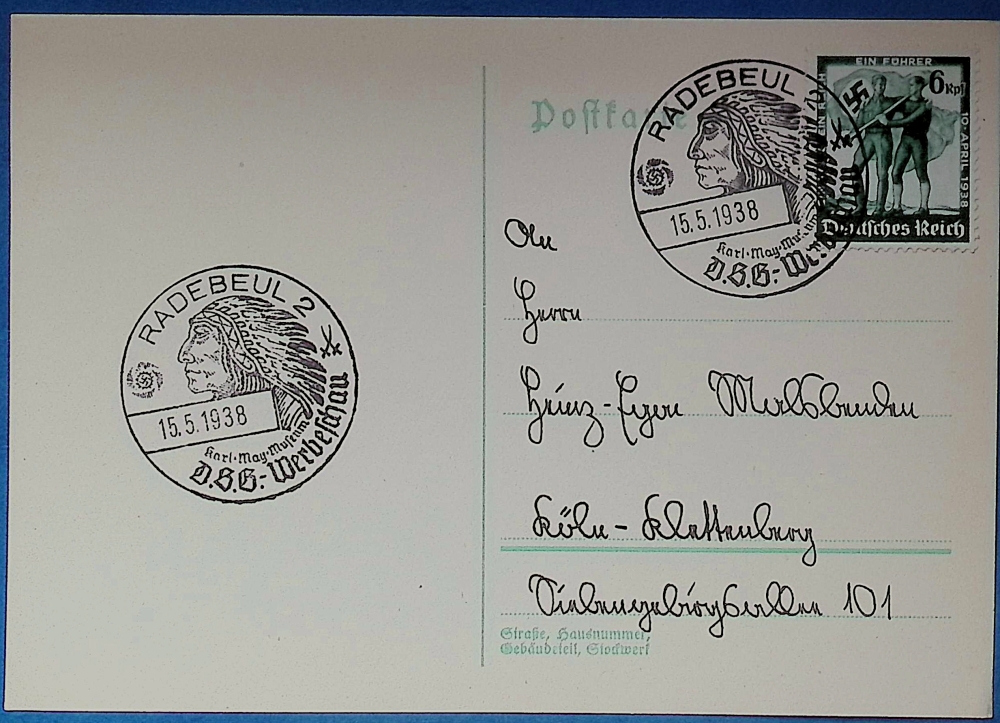 RADEBEUL 2
15.5.1938
Karl-May-Museum
D.S.G.-Werbeschau
Postkarte
RADEBEUL
15.5.1938
Karl-May-Museum
D.S.G.-Werbeschau
EIN FÜHRER
EIN REICH
6 Rpf
10. APRIL 1938
Deutsches Reich
An
Herrn
Heinz-Egon Malsbenden
Köln-Klettenberg
Siebengebirgsallee 101
Straße, Hausnummer,
Gebäudeteil, Stockwerk